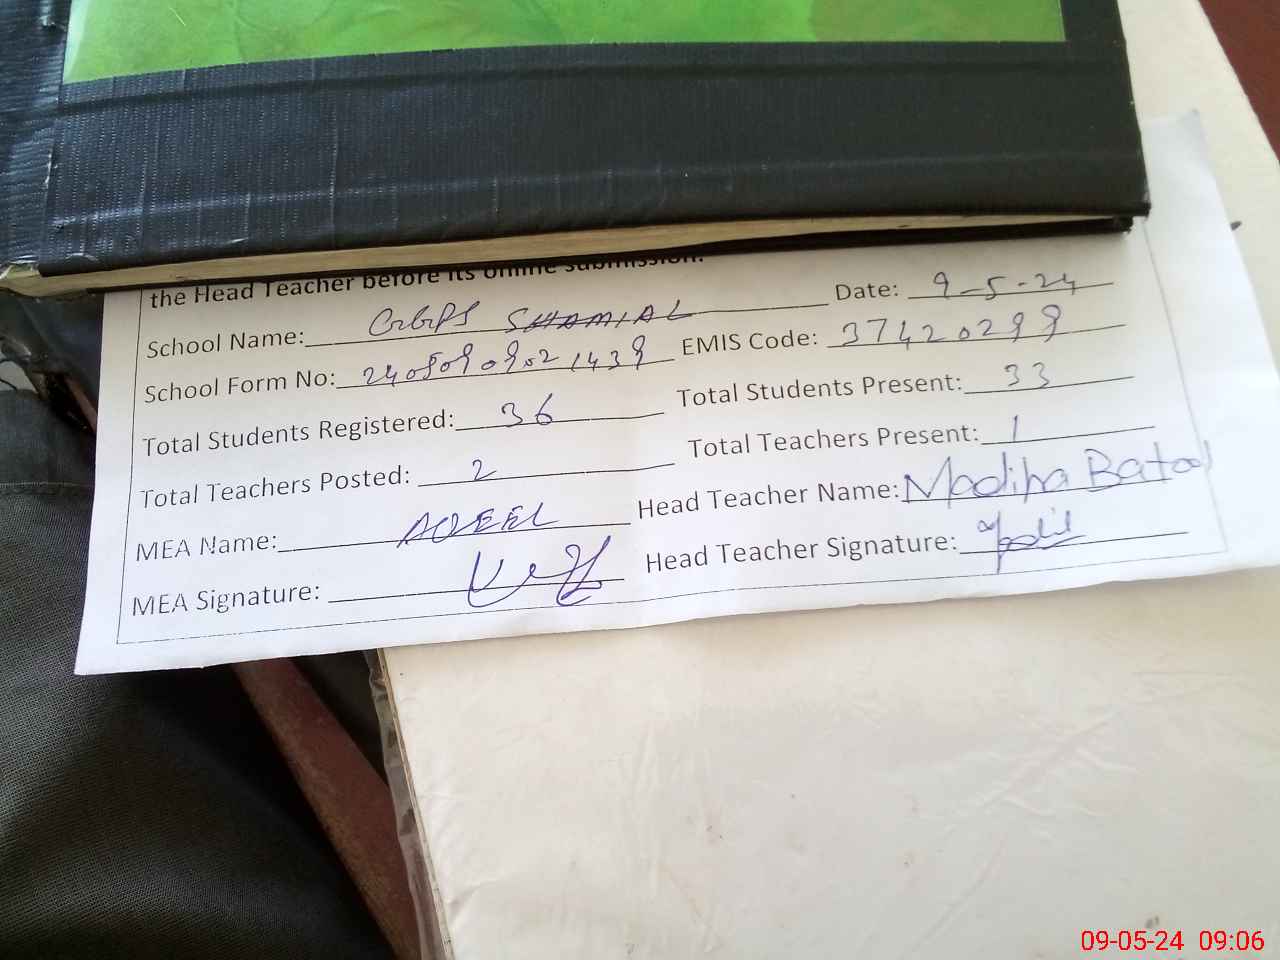 the Head Teacher before its online submission.
School Name: GGPS SHAMIAL Date: 9-5-24
School Form No: EMIS Code: 37420299
Total Students Registered: 36 Total Students Present: 33
Total Teachers Posted: 2 Total Teachers Present: 1
MEA Name: AQEEL Head Teacher Name: Madiha Batool
MEA Signature: Head Teacher Signature:
09-05-24 09:06